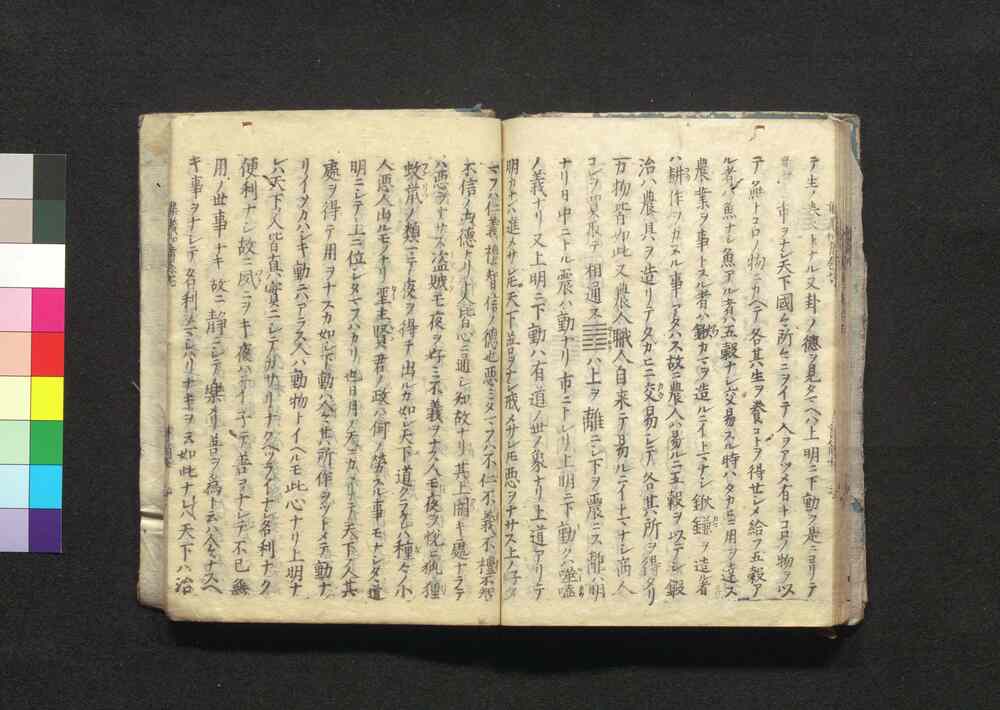 テ生ノ長トナル又卦ノ德ヲ見タマヘハ上明ニ下動ク是ニヨリテ
市ヲナシ天下國々所々ニヲイテ人ヲアツメ有トコロノ物ヲ以
テ無トコロノ物ニカヘテ各其生ヲ養コトヲ得セシメ給フ五穀ア
ル者ハ魚ナシ魚アル者ハ五穀ナシ交易スル時ハタカヒニ用ヲ達ス
農業ヲ事トスル者ハ鍬カマヲ造ルニイトマナシ鍬鎌ヲ造ル者
ハ耕作ヲカヌル事アタハス故ニ農人ハ易ルニ五穀ヲ以テシ鍛
治ハ農具ヲ造リテタカヒニ交易シテ各其所ヲ得タリ
万物皆如此又農人職人自来テ易ルニイトマナシ商人
コレヲ買取テ相通ス䷔ハ上ヲ離ニシ下ヲ震ニス離ハ明
ナリ日中ニトル震ハ動ナリ市ニトレリ上明ニ下動クハ噬嗑
ノ義ナリ又上明ニ下動ハ有道ノ世ノ象ナリ上道アリテ
明カナハ進メサレ𪜈天下並善ヲナシ戒メサレ𪜈悪ヲナサス上ノ子タ
マフハ仁義禮智信ノ德也悪ミタマフハ不仁不義不禮不智
不信ノ凶德ナリ人皆心ニ通シ知故ナリ其上闇キ處ナラテ
ハ悪ヲナサス盗賊モ夜ヲ好ミ不義ヲナス人モ夜ヲ悦ヒ狐狸
蚊虻ノ類ニテ夜ヲ得テ出ルカ如シ天下道クラケレハ種々ノ小
人悪人出ルモノナリ聖主賢君ノ政ハ何ノ勞スル事モナシタヽ道
明ニシテ上ニ位シタマフハカリ也日月ノ天ニカヽリテ天下ノ人其
處ヲ得テ用ヲナスカ如シ下動ハ人々其所作ヲツトメテ動ナ
リイツハカハシキ動ニハアラス人ハ動物トイヘルモ此心ナリ上明ナ
レハ天下ノ人皆眞實ニシテ形サリナクヘツライナシ名利ナク
便利ナシ故ニ夙ニヲキ夜ハニイ子テ善ヲナシテ不已無
用ノ世事ナキ故ニ靜ニシテ樂メリ善ヲ為ト云ハ人々ナスヘ
キ事ヲナシテ名利ノマシハリナキヲ云如此ナレハ天下ハ治